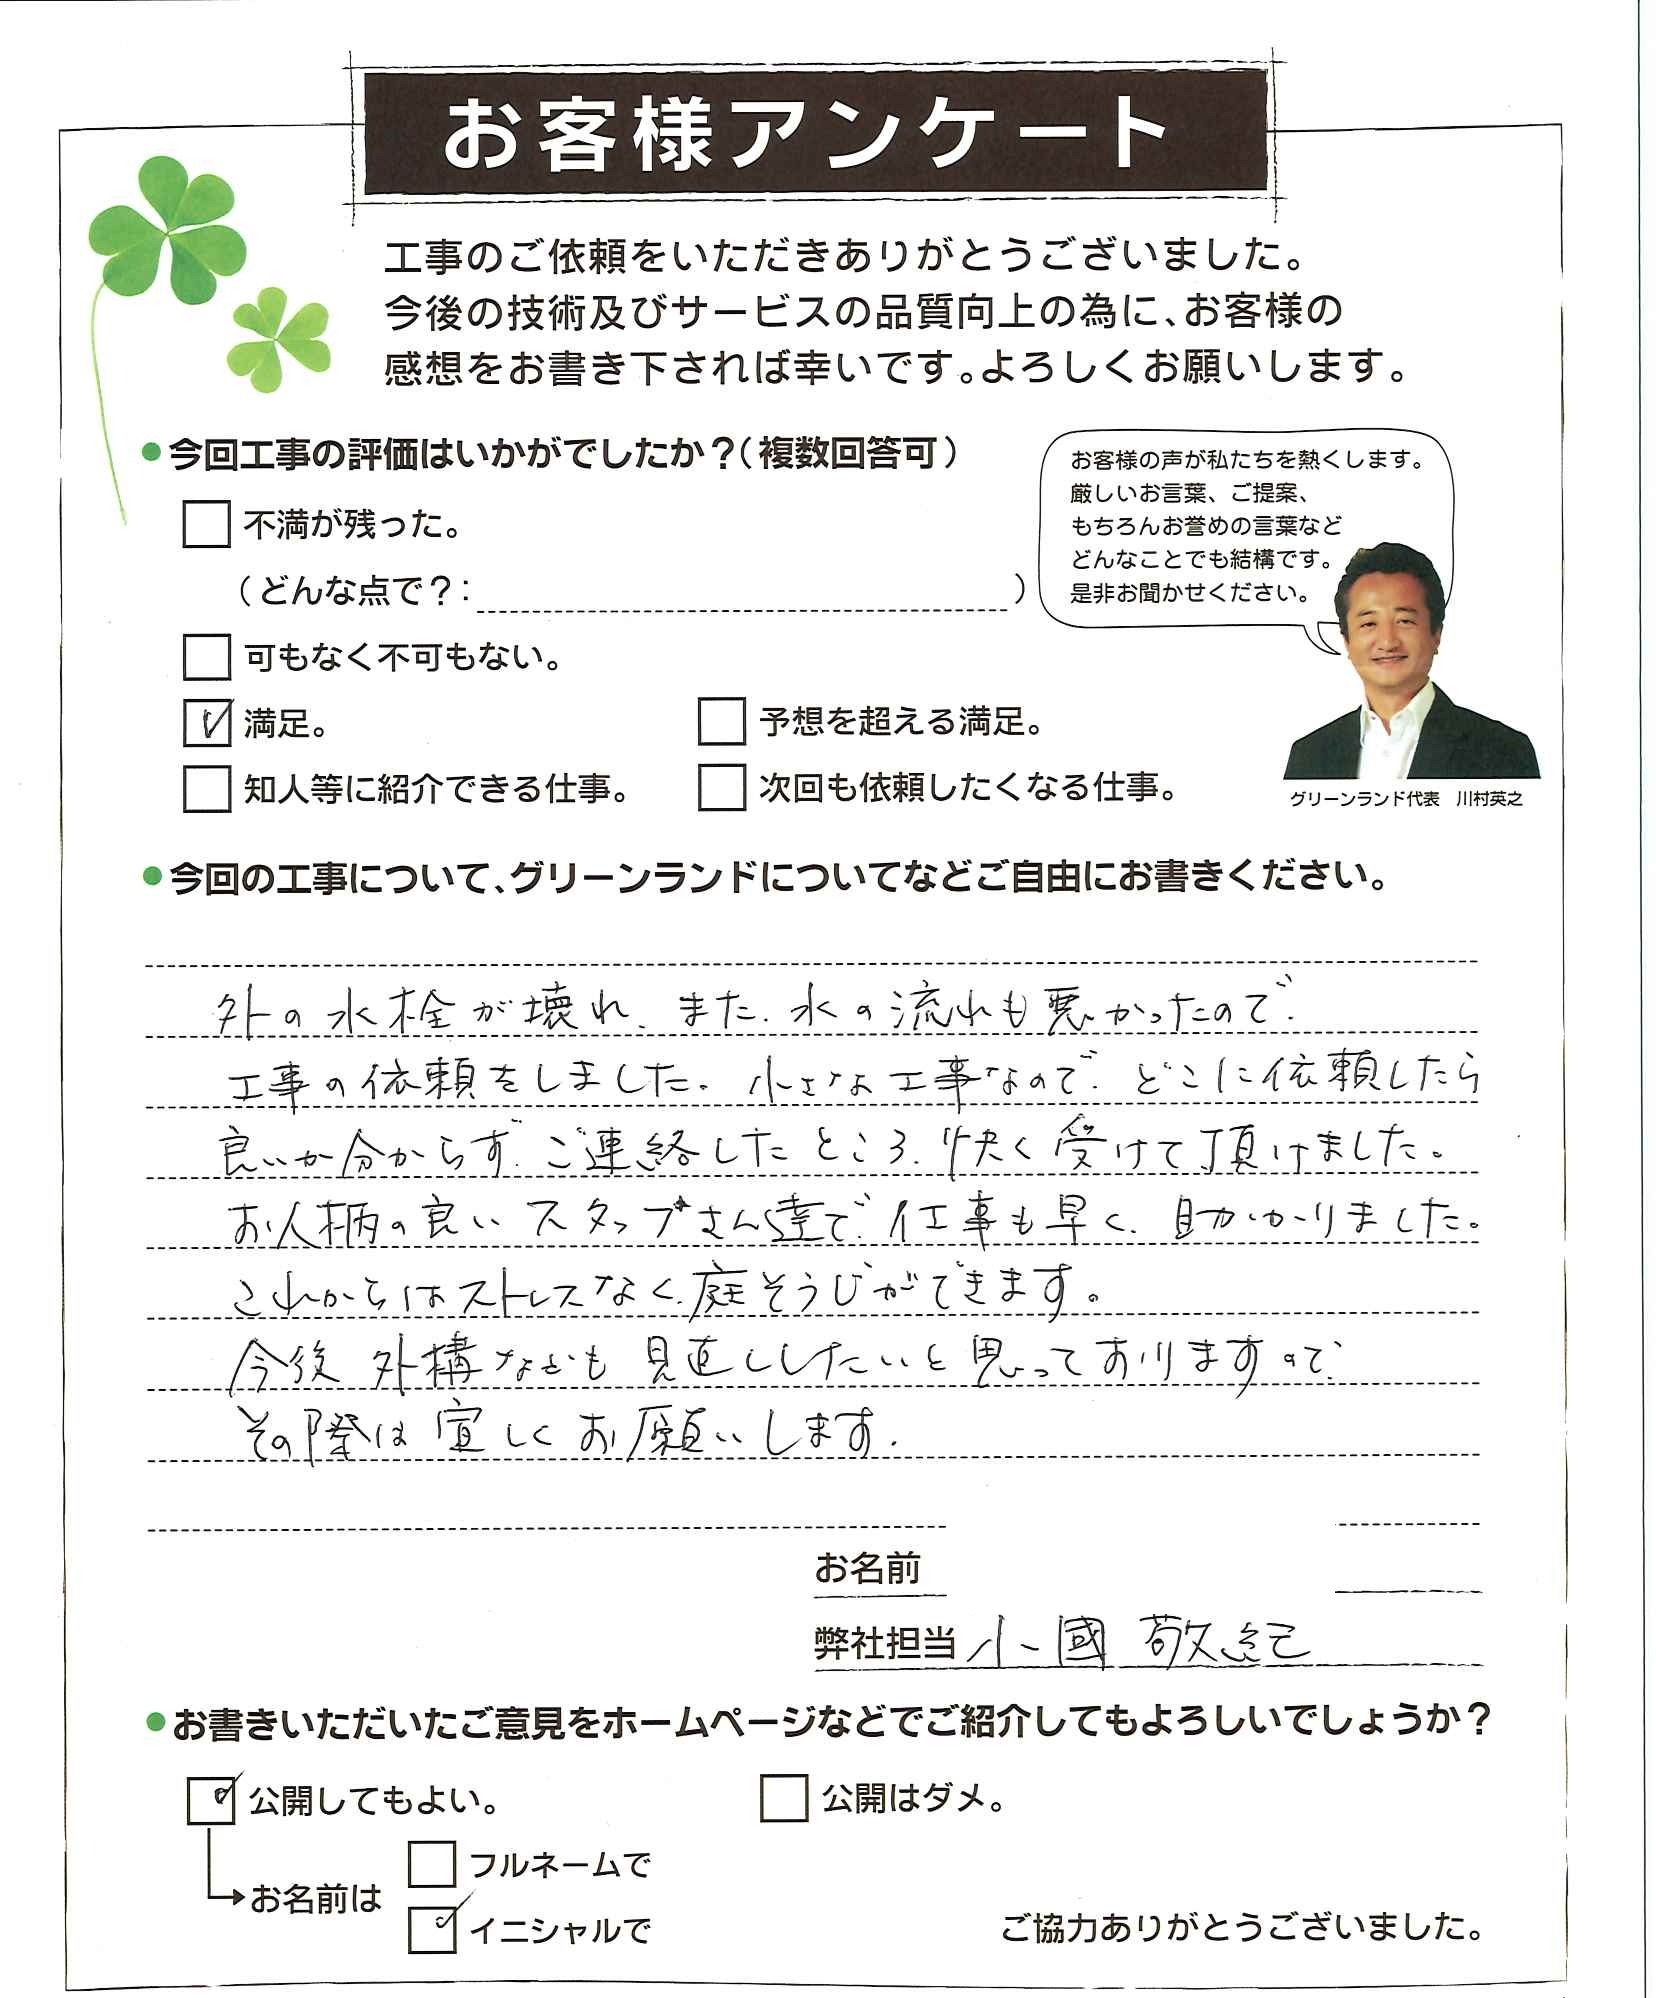 お客様アンケート
工事のご依頼をいただきありがとうございました。
今後の技術及びサービスの品質向上の為に、お客様の
感想をお書き下されば幸いです。よろしくお願いします。
●今回工事の評価はいかがでしたか？（複数回答可）
お客様の声が私たちを熱くします。
厳しいお言葉、ご提案、
もちろんお誉めの言葉など
どんなことでも結構です。
是非お聞かせください。
不満が残った。
（どんな点で？：　）
可もなく不可もない。
満足。
予想を超える満足。
知人等に紹介できる仕事。
次回も依頼したくなる仕事。
グリーンランド代表　川村英之
●今回の工事について、グリーンランドについてなどご自由にお書きください。
外の水栓が壊れ、また、水の流れも悪かったので、
工事の依頼をしました。小さな工事なので、どこに依頼したら
良いか分からず、ご連絡したところ、快く受けて頂けました。
お人柄の良いスタッフさん達で、仕事も早く、助かりました。
これからはストレスなく、庭そうじができます。
今後外構なども見直ししたいと思っておりますので、
その際は宜しくお願いします。
お名前
弊社担当 小國 敬紀
●お書きいただいたご意見をホームページなどでご紹介してもよろしいでしょうか？
公開してもよい。
公開はダメ。
お名前は
フルネームで
イニシャルで
ご協力ありがとうございました。